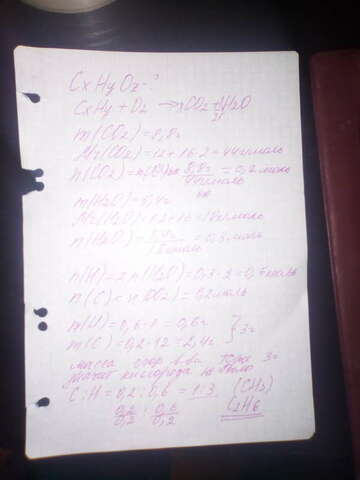 CxHyOz - ?
CxHy + O2 → xCO2 + H2O
m(CO2) = 8,8г
Mr(CO2) = 12 + 16·2 = 44г/моль
n(CO2) = 8,8г / 44г/моль = 0,2 моль
m(H2O) = 5,4г
Mr(H2O) = 1·2 + 16 = 18г/моль
n(H2O) = 5,4г / 18моль = 0,3 моль
n(H) = 2 n(H2O) = 0,3·2 = 0,6моль
n(C) = n(CO2) = 0,2моль
m(H) = 0,6·1 = 0,6г
m(C) = 0,2·12 = 2,4г } 3г
масса в-ва тоже 3г
значит кислорода не было
C : H = 0,2 : 0,6 = 1:3 (CH3)
0,2/0,2 : 0,6/0,2 C2H6